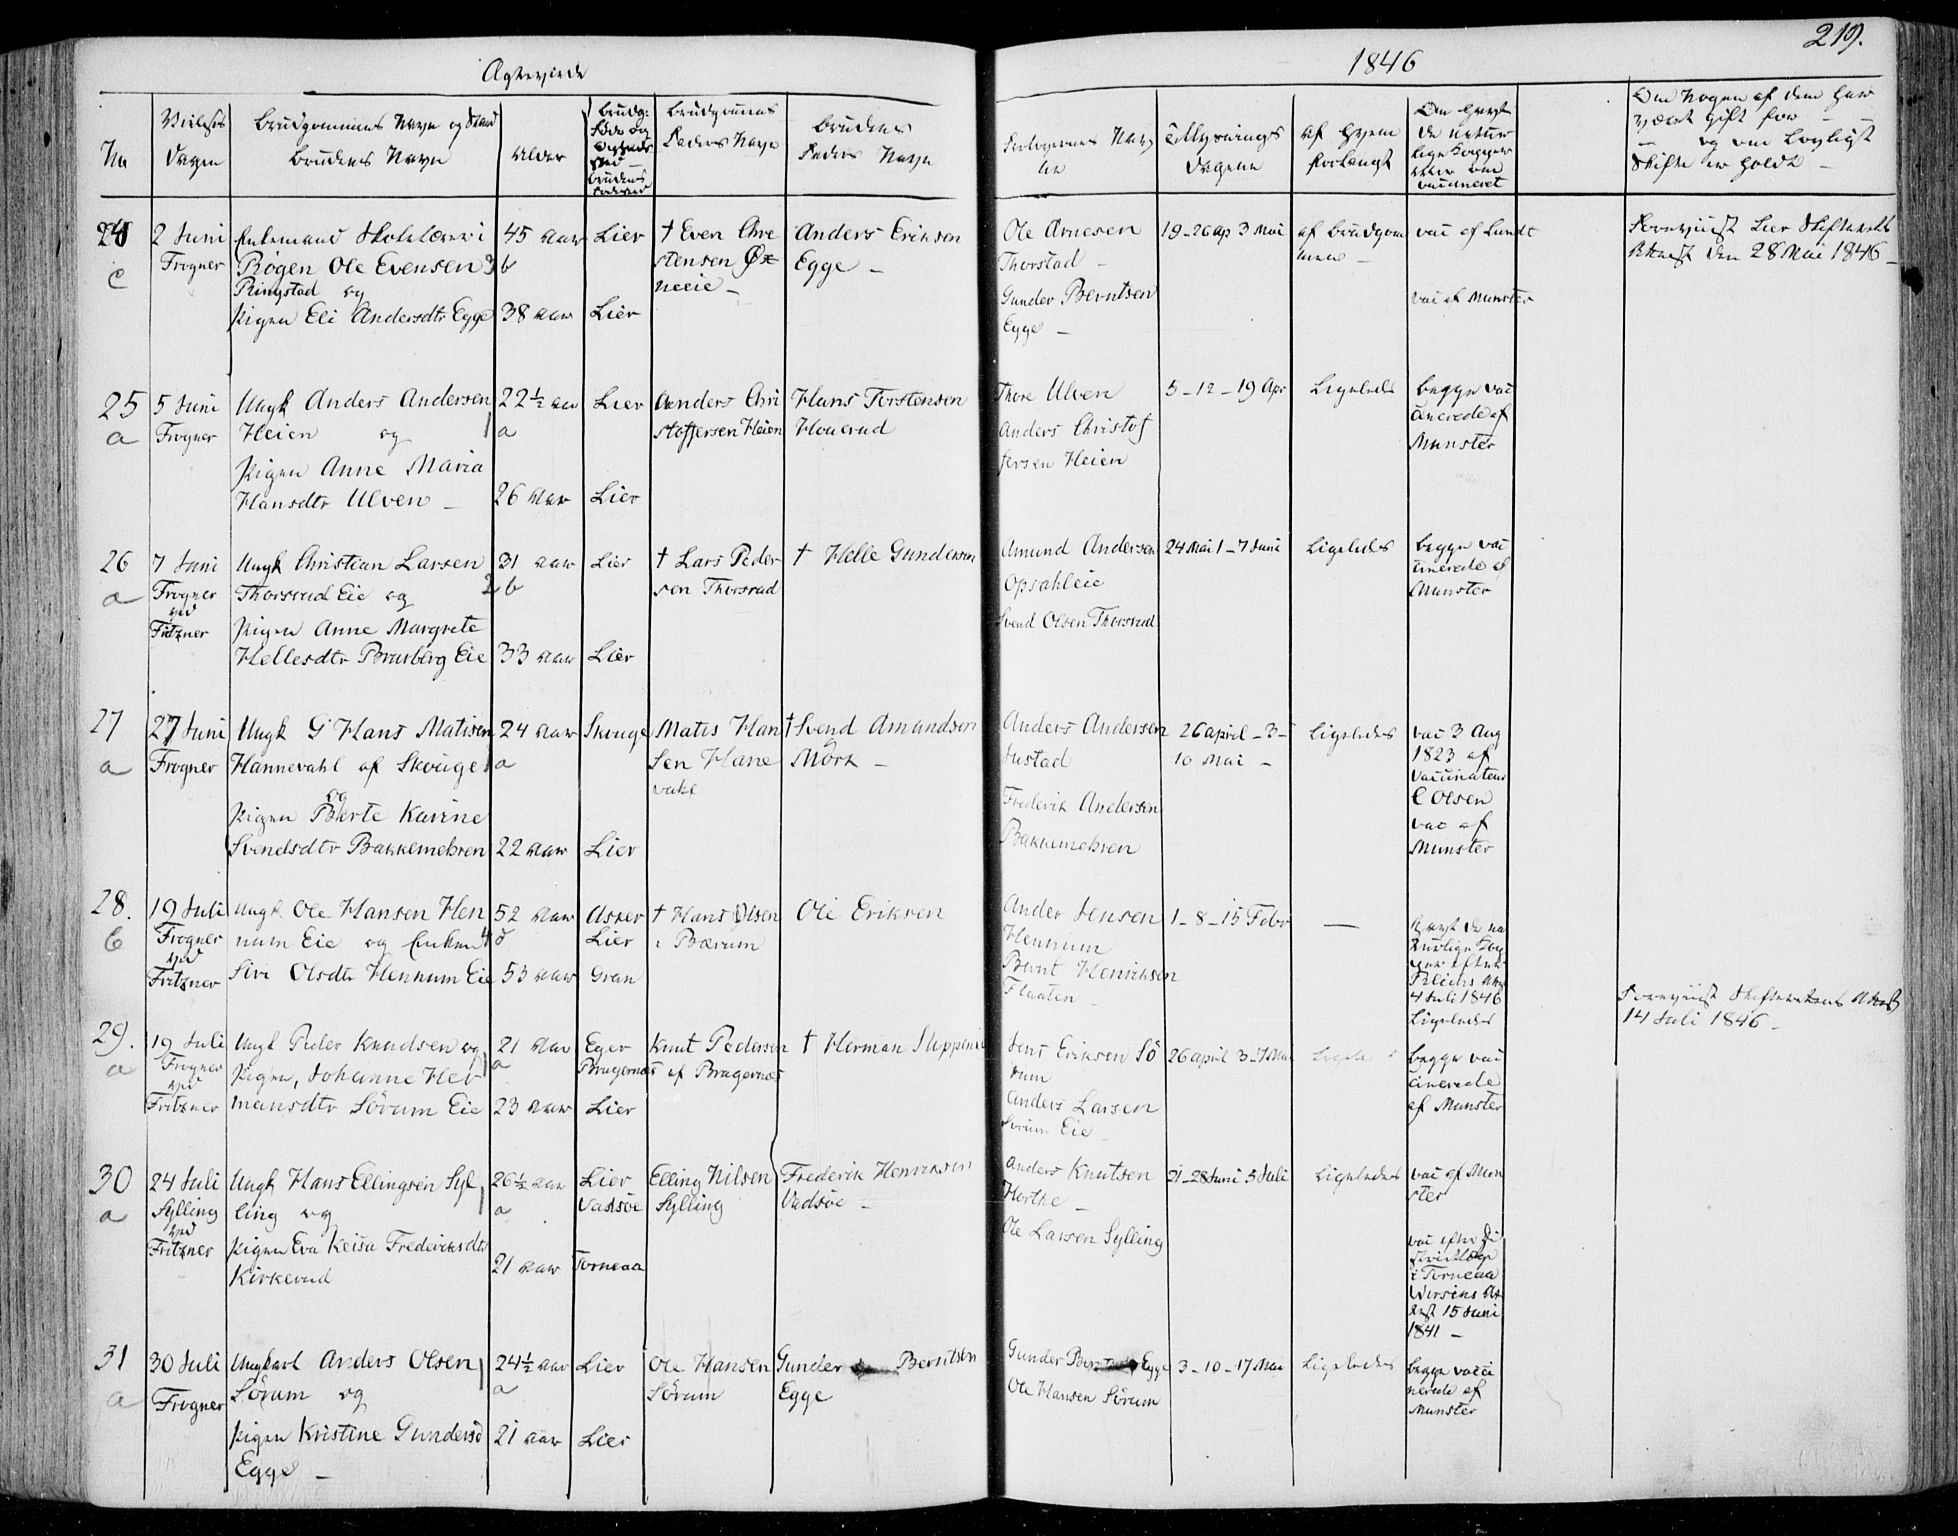 219.
Ægteviede
1846
No
Vielses
Dagen
Brudgommens Navn og Stand
Brudens Navn
Alder
Brudgommens
Faders Navn
Brudens
Faders Navn
Forlovernes Nav
ne
Tillysnings
Dagene
af Hvem
forlangt
Om havt
de natur
lige Kopper
eller ere
vaccineret
Om Nogen af dem har
været gift før —
— og om Lovligt
Skifte er holdt —
24
c
2 Juni
Frogner
Enkemand Skolelærer i
Røgen Ole Evensen
Ringstad og
Pigen Eli Andersdtr Egge
45 Aar
3 b
38 Aar
Lier
Lier
† Even Chri
stensen Øx
neeie —
Anders Eriksen
Egge —
Ole Arnesen
Thorstad —
Gunder Berntsen
Egge —
19-26 Ap 3 Mai
af Brudgom
men —
vac af Lundt
vac af Munster
Forevist Lier Skifteretts
Attest den 28 Mai 1846 —
25
a
5 Juni
Frogner
Ungk Anders Andersen
Heien og
Pigen Anne Maria
Hansdtr Ulven —
22½ aar
1 a
26 Aar
Lier
Lier
Anders Chri
stoffersen Heien
Hans Torstensen
Houerud
Thore Ulven
Anders Christof
fersen Heien
5-12-19 Apr
Ligeledes
begge vac
cinerede af
Munster
26
a
7 Juni
Frogner
ved
Fritzner
Ungk Christian Larsen
Thorsrud Eie og
Pigen Anne Margrete
Hellesdtr Brusberg Eie
31 aar
2 b
33 aar
Lier
Lier
† Lars Peder
sen Thorsrud
† Helle Gundersen
Amund Andersen
Opsahleie
Svend Olsen Thorsrud
24 Mai 1-7 Juni
Ligeledes
begge vac
cinerede af
Munster
27
a
27 Juni
Frogner
Ungk G Hans Matisen
Hannevahl af Skouge
og
Pigen Berte Karine
Svendsdtr Bakkemehren
24 Aar
1 a
22 Aar
Skouge
Lier
Mats Han
sen Hane
vahl
† Svend Amundsen
Mörk —
Anders Andersen
Justad
Frederik Andersen
Bakkemehren
26 april-3-
10 Mai —
Ligeledes
vac 3 Aug
1823 af
Vaccinateur
C Olsen
vac af
Munster
28.
b
19 Juli
Frogner
ved
Fritzner
Ungk. Ole Hansen Hen
num Eie og Enken
Siri Olsdtr Hennum Eie
52 Aar
53 Aar
Asker
Lier
Gran
† Hans Olsen
i Bærum
Ole Eriksen
Ander Jensen
Hennum
Bernt Henriksen
Flaaten —
1-8-15 Febr
—
havt de na
turlige Kop
4 Juli 1846
Ligeledes
Forevist Skifterettens Attest
14 Juli 1846 —
29.
a
19 Juli
Frogner
ved
Fritzner
Ungk Peder Knudsen og
Pigen, Johanne Her
mansdtr Sörum Eie
21 Aar
1 a
23 Aar
Eger
Bragernæs
Lier
Knut Pedersen
af Bragernæs
† Herman
Jens Eriksen Sö
rum
Anders Larsen
Sörum Eie —
26 april 3-7 Mai
begge vac
cinerede
af Munster
30
a
24 Juli
Sylling
ved
Fritzner
Ungk Hans Ellingsen Syl
ling og
Pigen Eva Keisa Frederiksdtr
Kirkerud
26½ aar
1 a
21 Aar
Lier
Vadsöe
Torneaa
Elling Nilsen
Sylling
Frederik Henriksen
Vadsöe —
Anders Knutsen
Horthe —
Ole Larsen Sylling
21-28 Juni 5 Juli
Ligeledes
vac af Mun
ster
i Torneaa
15 Juni
1841 —
31
a
30 Juli
Frogner
Ungkarl Anders Olsen
Sörum og
Pigen Kristine Gundersd
Egge —
24½ Aar
1 a
21 Aar
Lier
Lier
Ole Hansen
Sörum
Gunder Berntsen
Egge
Gunder Egge
Ole Hansen Sörum
3-10-17 Mai
Ligeledes
begge vacci
nerede af
Munster